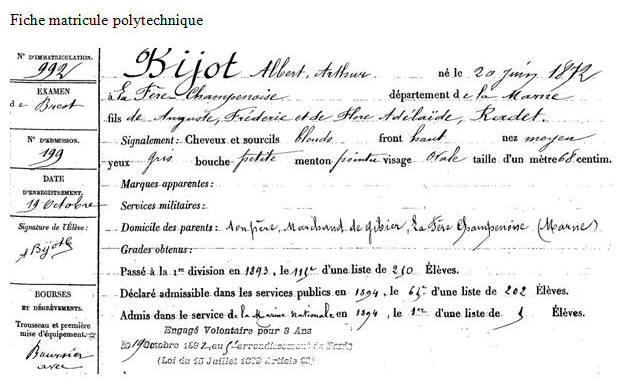 Fiche matricule polytechnique
N° D'IMMATRICULATION.
992
EXAMEN
de Brest
N° D'ADMISSION.
199
DATE
D'ENREGISTREMENT.
19 Octobre
Signature de l'Élève:
A Bijot
BOURSES
ET DÉGRÈVEMENTS.
Trousseau et première
mise d'équipement.
Boursier
avec
Bijot Albert, Arthur né le 20 juin 1872
à La Fère Champenoise département de la Marne
fils de Auguste, Fréderic et de Flore Adélaïde, Radet.
Signalement: Cheveux et sourcils blonds front haut nez moyen
yeux gris bouche petite menton pointu visage Ovale taille d'un mètre 68 centim.
Marques apparentes:
Services militaires:
Domicile des parents: son père, Marchand de gibier, La Fère Champenoise (Marne)
Grades obtenus:
Passé à la 1re division en 1893, le 115e d'une liste de 210 Élèves.
Déclaré admissible dans les services publics en 1894, le 65e d'une liste de 202 Élèves.
Admis dans le service de la Marine Nationale en 1894, le 1er d'une liste de Élèves.
Engagé Volontaire pour 3 Ans
Le 19 Octobre 1892, au arrondissement de Paris
(Loi du 15 Juillet 1889 Article)